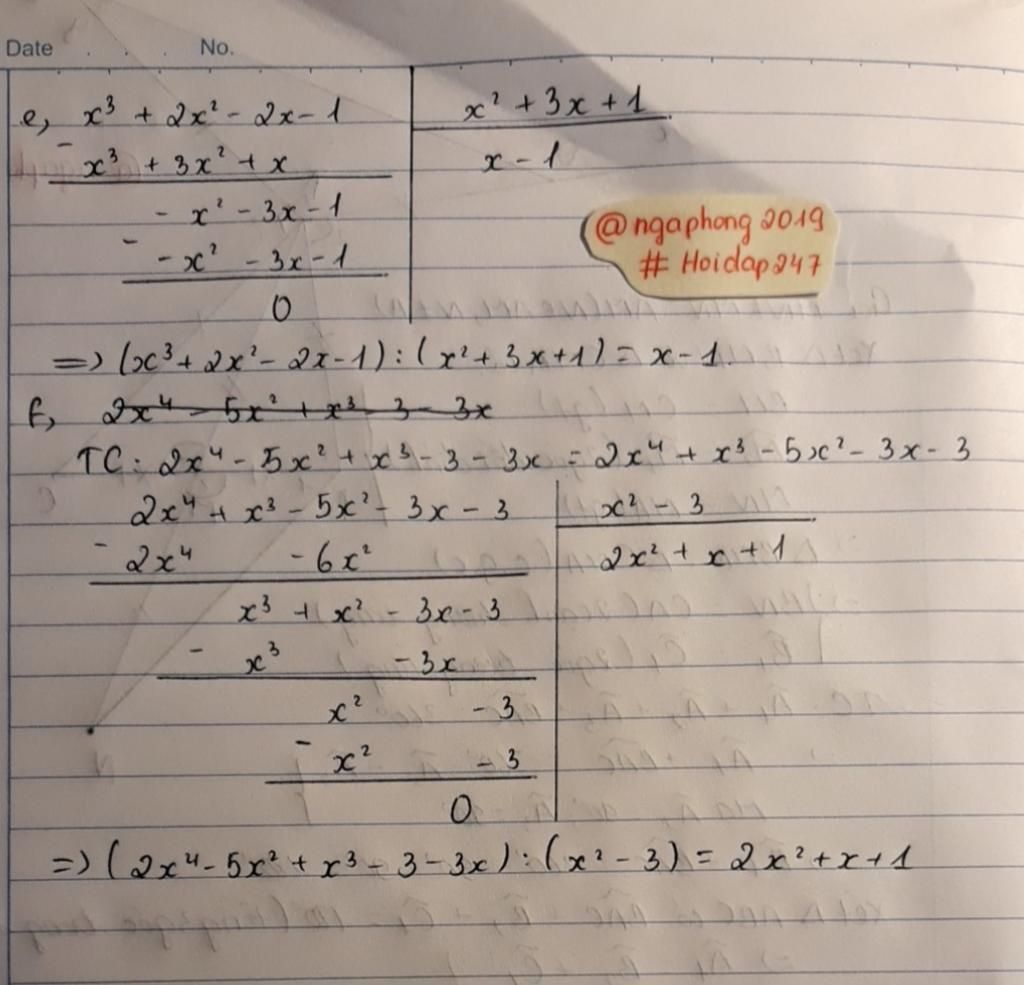 Date . . . No.
e, x³ + 2x² - 2x - 1 | x² + 3x + 1
- x³ + 3x² + x | x - 1
- x² - 3x - 1
- - x² - 3x - 1
0
@ngaphong 2019
# Hoidap247
=> (x³ + 2x² - 2x - 1) : (x² + 3x + 1) = x - 1.
f, 2x⁴ - 5x² + x³ - 3 - 3x
TC: 2x⁴ - 5x² + x³ - 3 - 3x = 2x⁴ + x³ - 5x² - 3x - 3
2x⁴ + x³ - 5x² - 3x - 3 | x² - 3
- 2x⁴ - 6x² | 2x² + x + 1
x³ + x² - 3x - 3
- x³ - 3x
x² - 3
- x² - 3
0
=> (2x⁴ - 5x² + x³ - 3 - 3x) : (x² - 3) = 2x² + x + 1